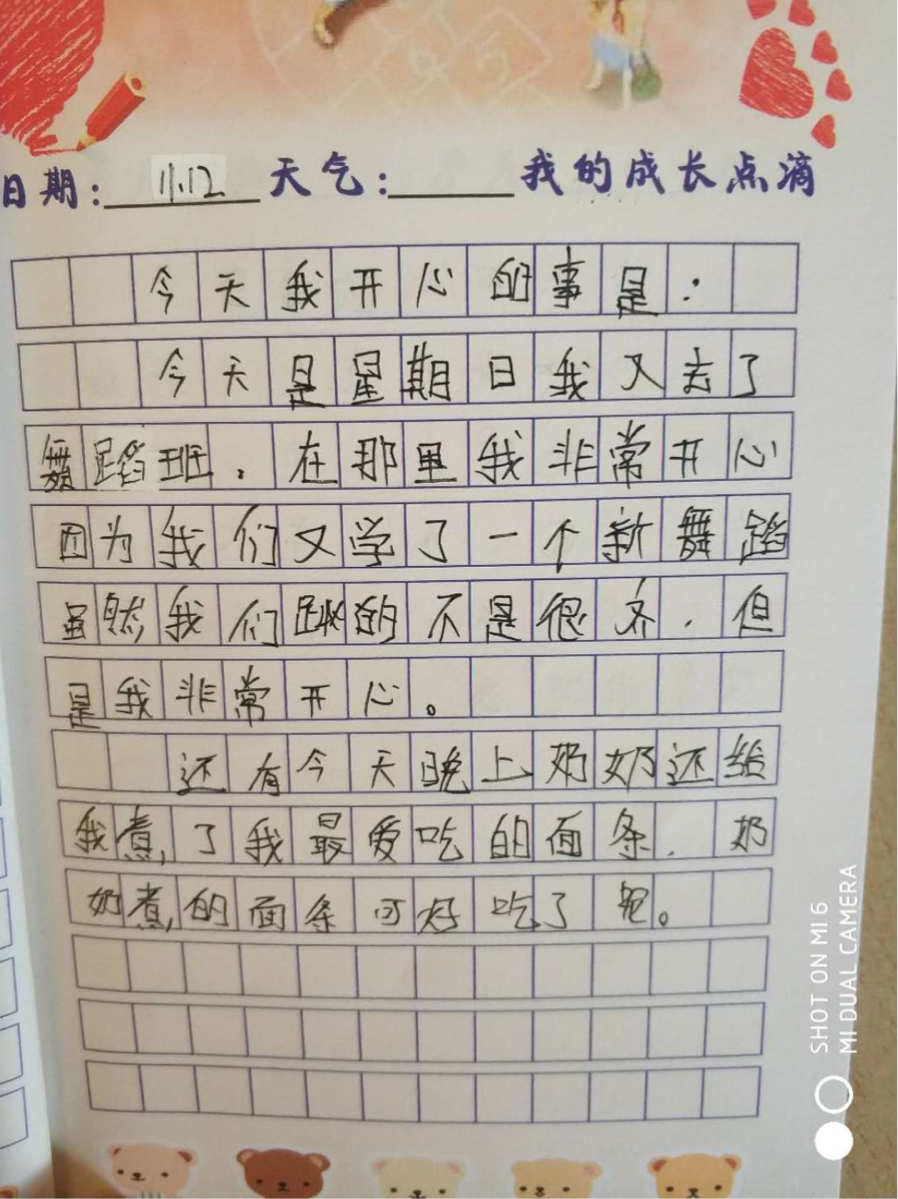 日期: 11.12 天气: 我的成长点滴
今天我开心的事是:
今天是星期日我又去了
舞蹈班.在那里我非常开心
因为我们又学了一个新舞蹈
虽然我们跳的不是很齐.但
是我非常开心。
还有今天晚上奶奶还给
我煮了我最爱吃的面条.奶
奶煮的面条可好吃了。
SHOT ON MI 6
MI DUAL CAMERA